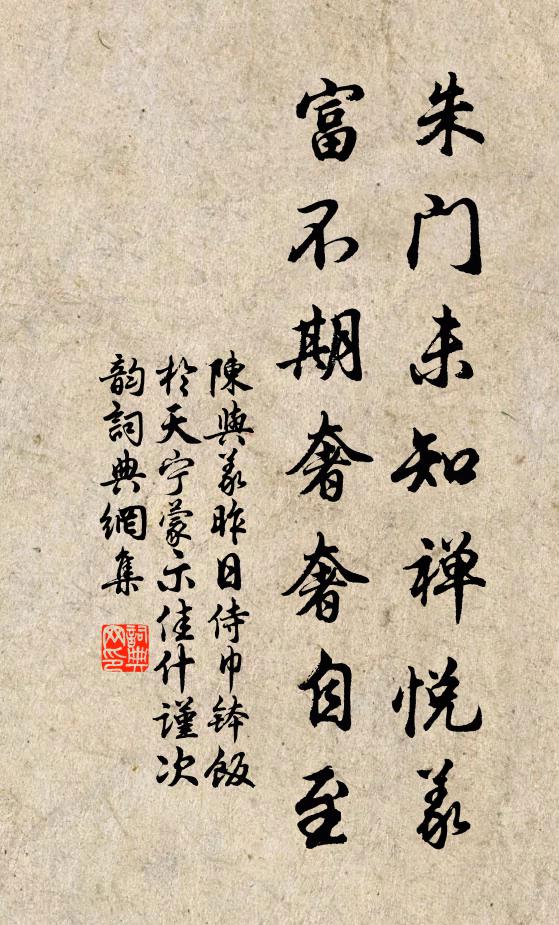 朱門未知禅悅義
富不期奢奢自至
陳與義昨日侍巾鉢飯
於天宁蒙示佳什謹次
韵詞典網集
詞典网印